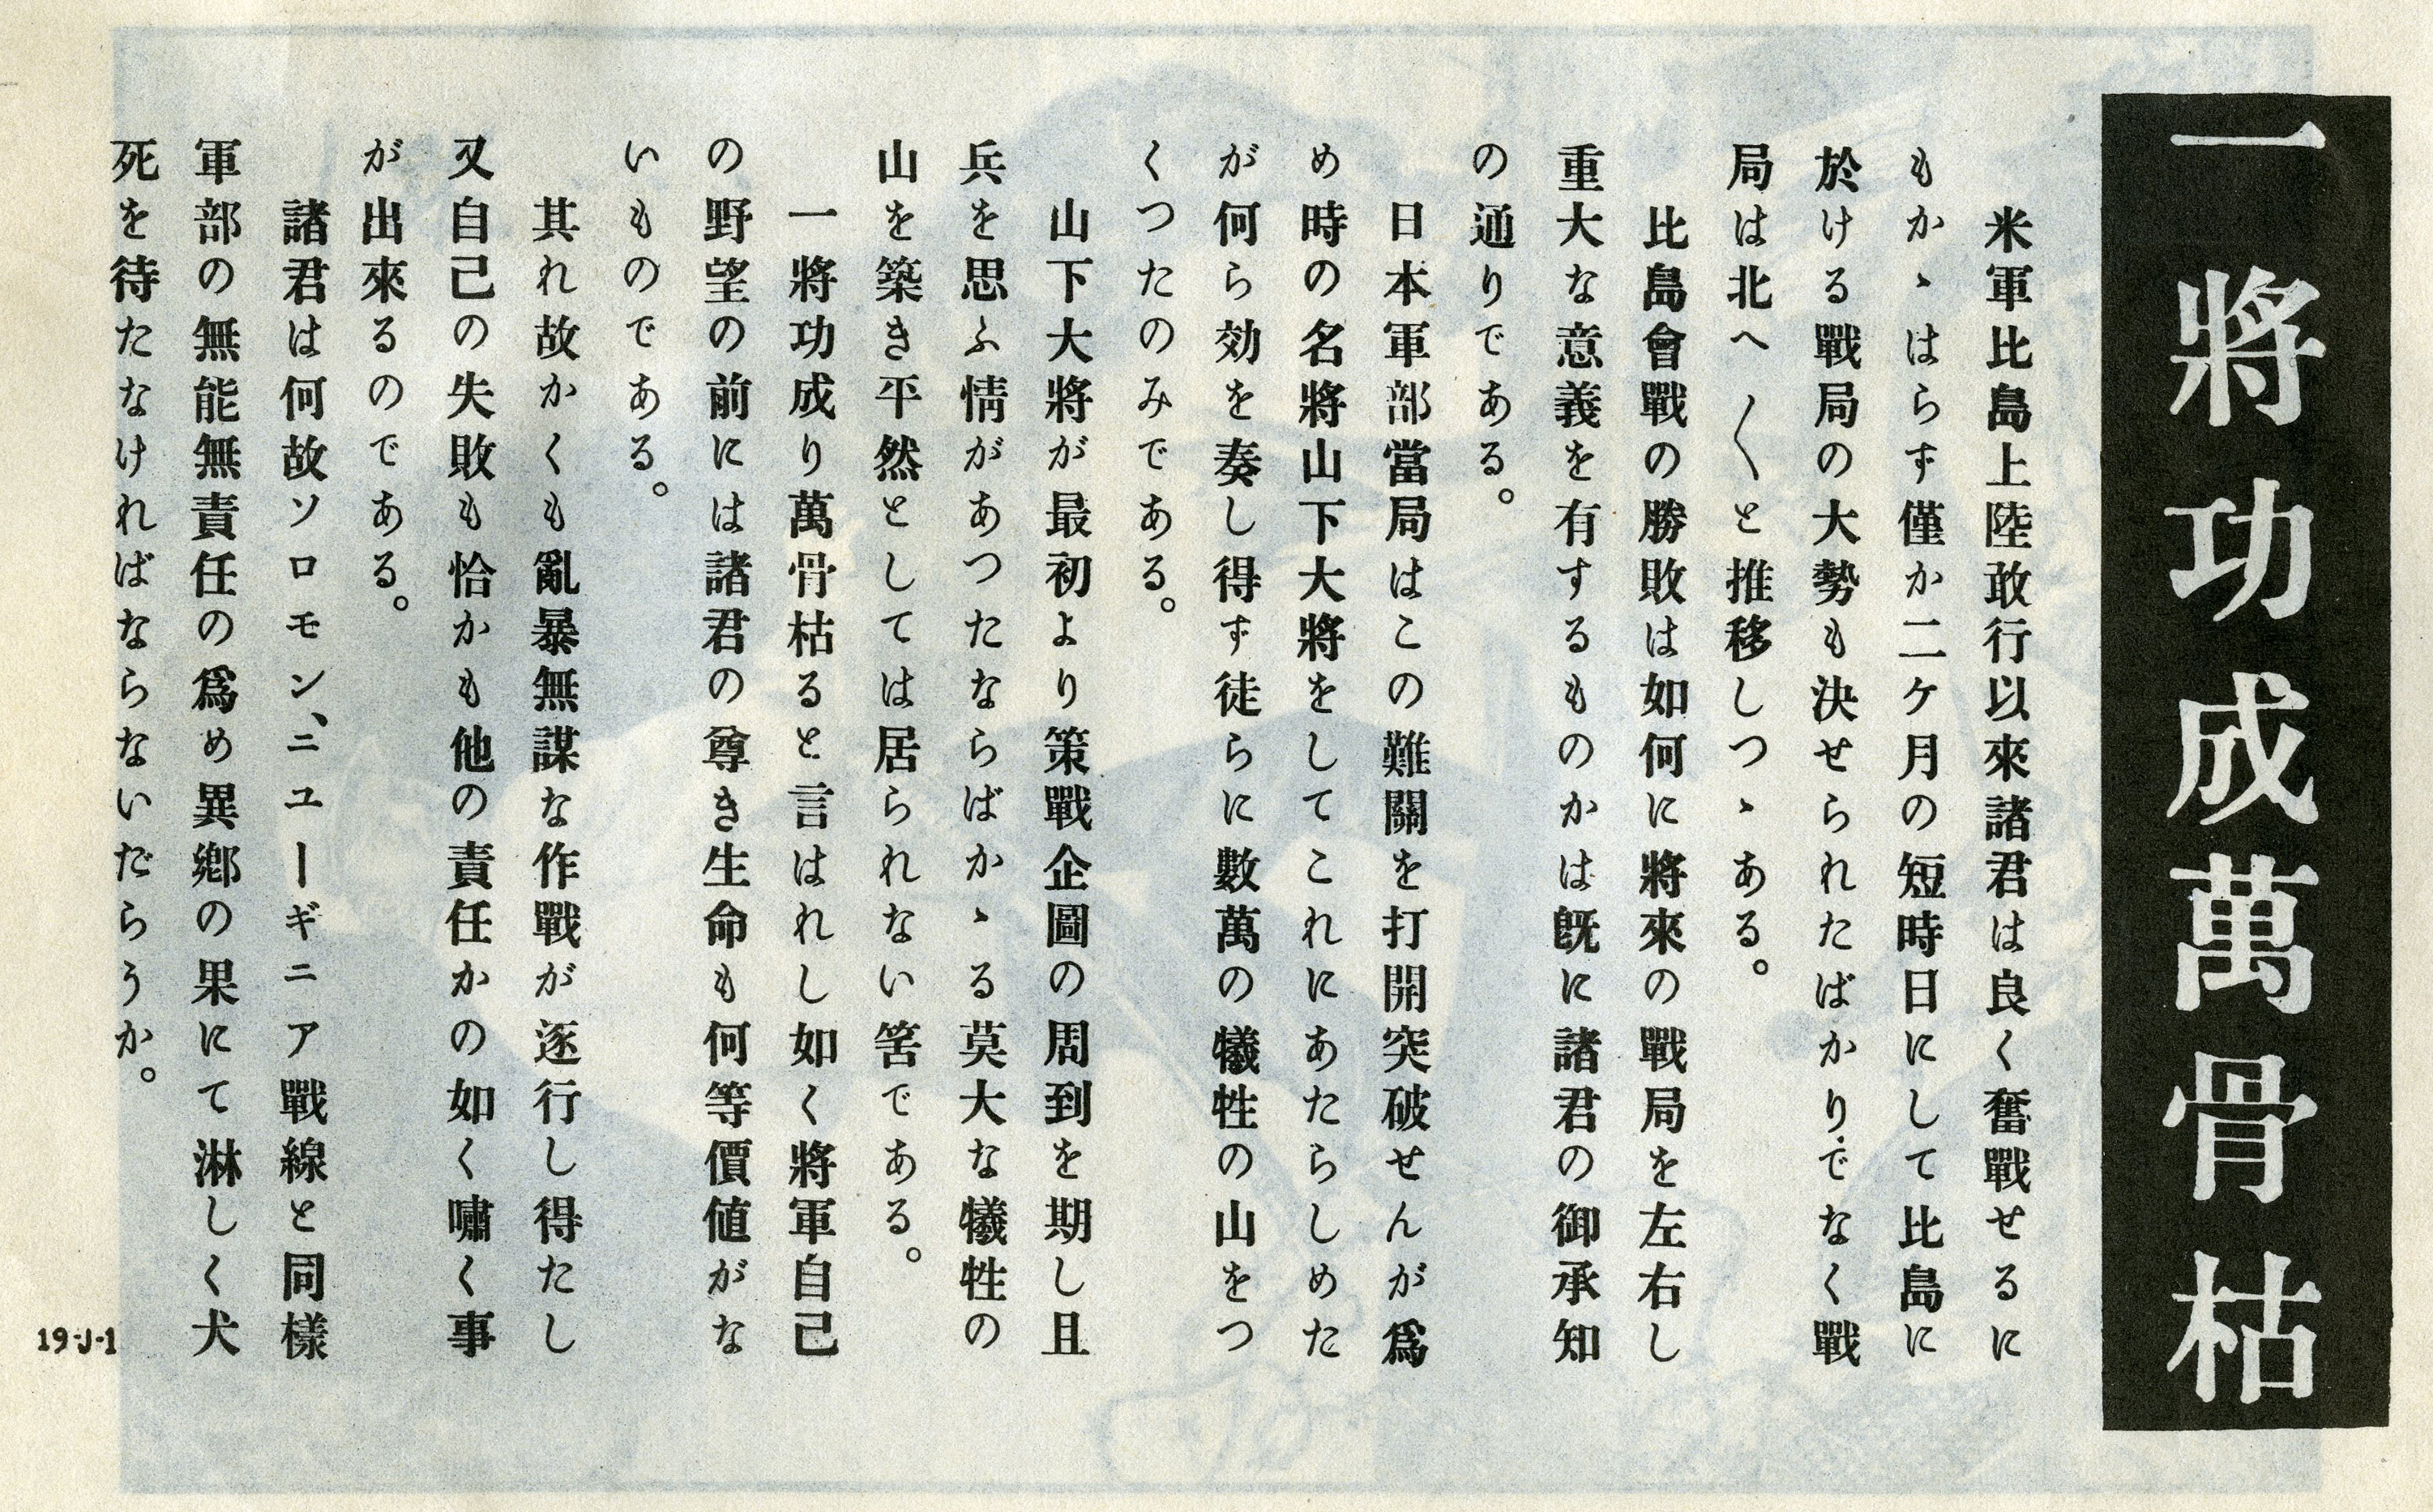 一將功成萬骨枯
米軍比島上陸敢行以來諸君は良く奮戰せるに
もかゝはらず僅か二ケ月の短時日にして比島に
於ける戰局の大勢も決せられたばかりでなく戰
局は北へ〱と推移しつゝある。
比島會戰の勝敗は如何に將來の戰局を左右し
重大な意義を有するものかは既に諸君の御承知
の通りである。
日本軍部當局はこの難關を打開突破せんが爲
め時の名將山下大將をしてこれにあたらしめた
が何ら効を奏し得ず徒らに數萬の犧牲の山をつ
くつたのみである。
山下大將が最初より策戰企圖の周到を期し且
兵を思ふ情があつたならばかゝる莫大な犧牲の
山を築き平然としては居られない筈である。
一將功成り萬骨枯ると言はれし如く將軍自己
の野望の前には諸君の尊き生命も何等價値がな
いものである。
其れ故かくも亂暴無謀な作戰が逐行し得たし
又自己の失敗も恰かも他の責任かの如く嘯く事
が出來るのである。
諸君は何故ソロモン、ニユーギニア戰線と同樣
軍部の無能無責任の爲め異鄕の果にて淋しく犬
死を待たなければならないだらうか。
19-J-1